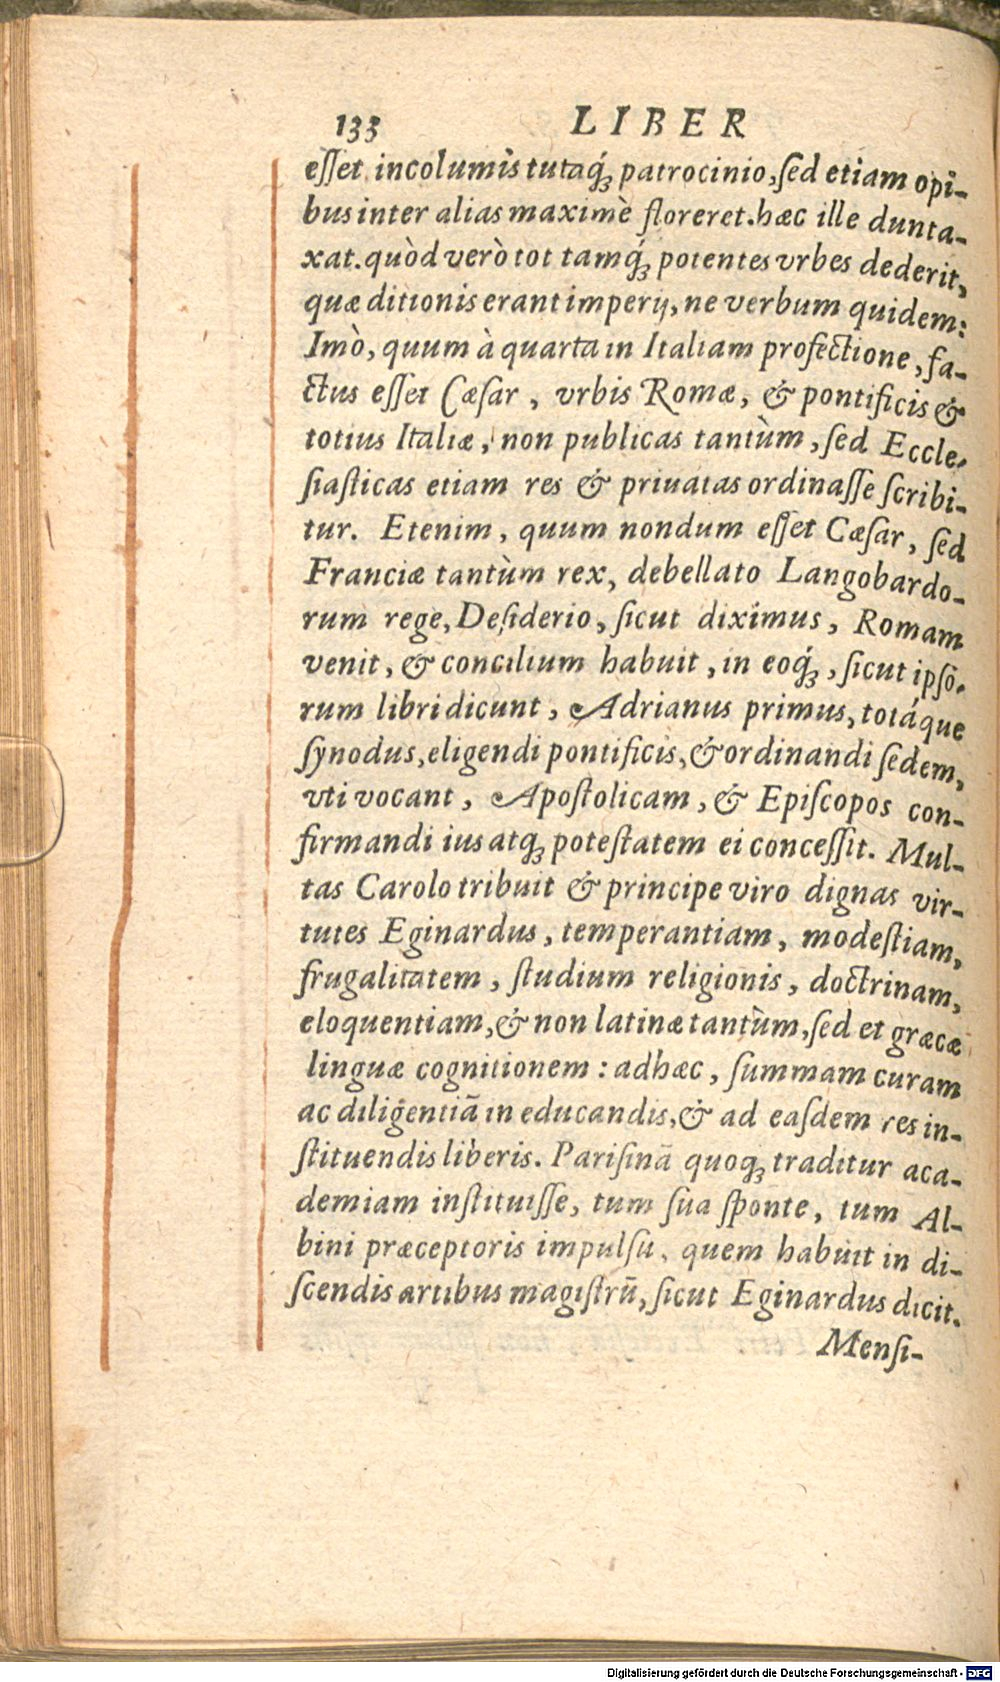 133 LIBER
eſſet incolumis tutaq́ꝫ patrocinio, ſed etiam opi-
bus inter alias maximè floreret. hæc ille dunta-
xat. quòd verò tot tamq́ꝫ potentes vrbes dederit,
quæ ditionis erant imperij, ne verbum quidem:
Imò, quum à quarta in Italiam profectione, fa-
ctus eſſet Cæſar, vrbis Romæ, & pontificis &
totius Italiæ, non publicas tantùm, ſed Eccle-
ſiaſticas etiam res & priuatas ordinaſſe ſcribi-
tur. Etenim, quum nondum eſſet Cæſar, ſed
Franciæ tantùm rex, debellato Langobardo-
rum rege, Deſiderio, ſicut diximus, Romam
venit, & concilium habuit, in eoq́ꝫ, ſicut ipſo-
rum libri dicunt, Adrianus primus, totáque
ſynodus, eligendi pontificis, & ordinandi ſedem,
vti vocant, Apoſtolicam, & Epiſcopos con-
firmandi ius atqꝫ poteſtatem ei conceſſit. Mul-
tas Carolo tribuit & principe viro dignas vir-
tutes Eginardus, temperantiam, modeſtiam,
frugalitatem, ſtudium religionis, doctrinam,
eloquentiam, & non latinæ tantùm, ſed et græcæ
linguæ cognitionem: adhæc, ſummam curam
ac diligentiā in educandis, & ad eaſdem res in-
ſtituendis liberis. Pariſinā quoqꝫ traditur aca-
demiam inſtituiſſe, tum ſua ſponte, tum Al-
bini præceptoris impulſu, quem habuit in di-
ſcendis artibus magiſtrū, ſicut Eginardus dicit.
Menſi-
Digitalisierung gefördert durch die Deutsche Forschungsgemeinschaft - DFG